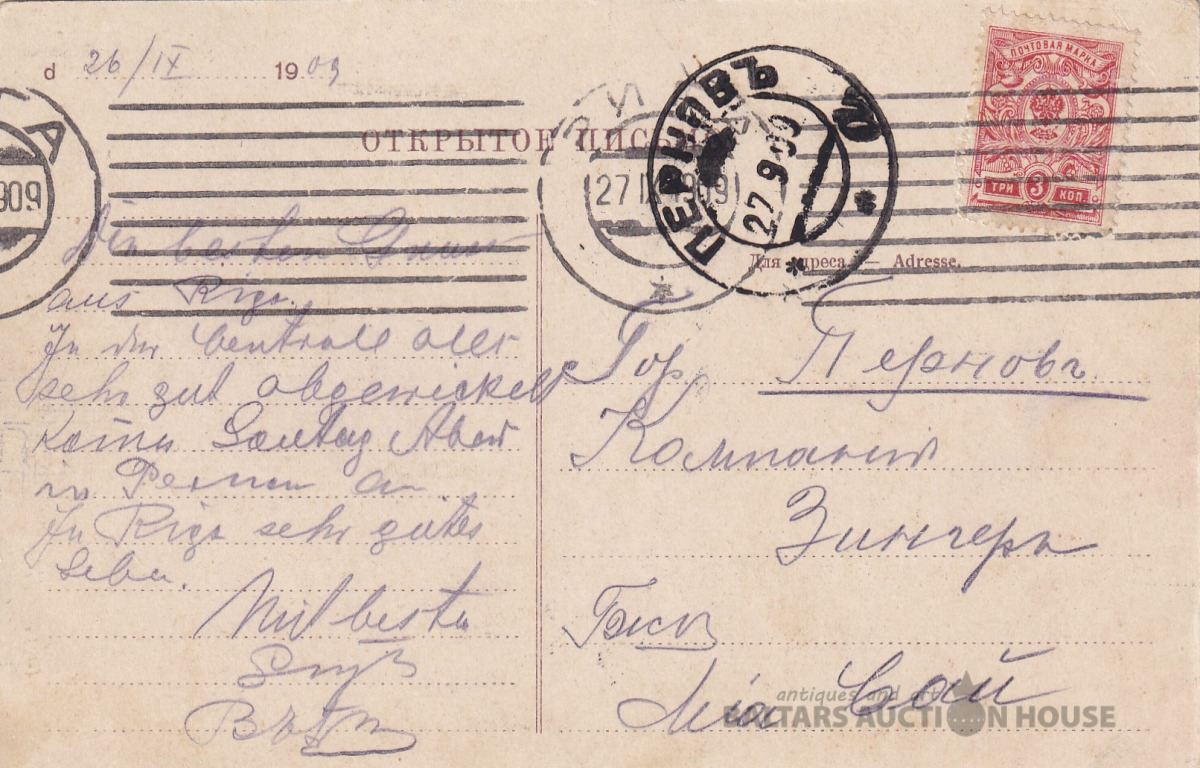 d 26/IX 1909
ОТКРЫТОЕ ПИСЬМО
Для адреса. — Adresse.
ПОЧТОВАЯ МАРКА
ТРИ 3 КОП.
ПЕРНОВЪ
27 9 09
27 IX 1909
А
909
Die besten Grüsse
aus Riga.
In der Centrale alles
sehr gut abgewickelt
Komme Sontag Abend
in Pernau an.
In Riga sehr gutes
Leben.
Mit besten
Gruß
Гор. Перновъ
Компанія
Зингеръ
antiques and art
BALTARS AUCTION HOUSE